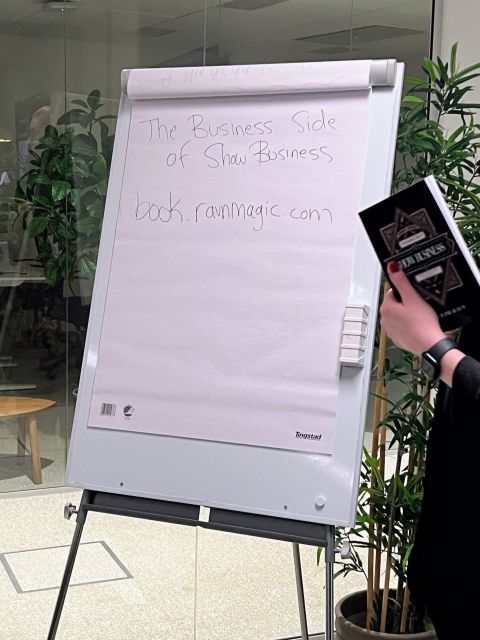 The Business Side
of Show Business
book.ravnmagic.com
Tingstad
SHOW BUSINESS